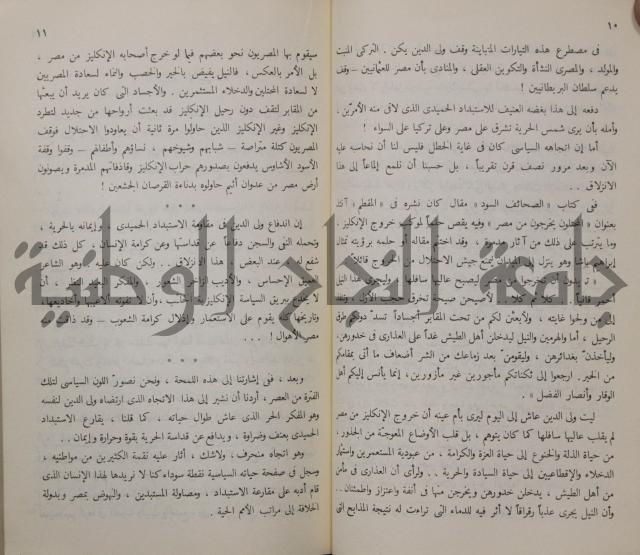 ١٠
فى مصطرع هذه التيارات المتباينة وقف ولى الدين يكن . التركى المنبت
والمولد ، والمصرى النشأة والتكوين العقلى ، والمنادى بأن مصر للعثمانيين – وقف
يدعم سلطان البريطانيين !
دفعه إلى هذا بغضه العنيف للاستبداد الحميدى الذى لاقى منه الأمرّين .
وأمله بأن يرى شمس الحرية تشرق على مصر وعلى تركيا على السواء !
أما إن اتجاهه السياسى كان فى غاية الخطل فليس لنا أن نحاسبه عليه
الآن وبعد مرور نصف قرن تقريباً ، بل حسبنا أن نلمع إلماعاً إلى هذا
الانزلاق . .
فى كتاب « الصحائف السود » مقال كان نشره فى « المقطم »
بعنوان « المحتلون يخرجون من مصر » وفيه يقص حلماً لموكب خروج الإنكليز .
وما يترتب على ذلك من آثار مدمرة ، وقد اختتم مقاله أو حلمه برؤيته تمثال
إبراهيم باشا وهو ينزل إلى الميدان ليمنع جيش الاحتلال من الخروج قائلاً
« تريدون أن تخرجوا من مصر ليصبح عاليها سافلها ، وليجرى هذا النيل
أحمر قانياً . . كلا ثم كلا . . لأصيحن صيحة تخرق حجب الأزل ، وتنفذ
إلى من ولجوا غايته ، ولأبعثن لكم من تحت المقابر أجساداً تسد دونكم طرق
الرحيل ، أما والهرمين والنيل ليدخلن أهل الطيش غداً على العذارى فى خدورهن ،
وليأخذن بغدائرهن ، وليقومن بعد زماعك من الشر أضعاف ما أتى بمقامكم
من الخير . ارجعوا إلى ثكناتكم مأجورين غير مأزورين ، إنما يأنس إليكم أهل
الوقار وأنصار الفضل » .
ليت ولى الدين عاش إلى اليوم ليرى بأم عينه أن خروج الإنكليز من مصر
لم يقلب عاليها سافلها كما كان يتوهم ، بل قلب الأوضاع المعوجّة من الجذور ،
من حياة الذلة والخنوع إلى حياة العزة والكرامة ، من عبودية المستعمرين واستثمار
الدخلاء والإقطاعيين إلى حياة السيادة والحرية . . ولرأى أن العذارى فى مأمن
من أهل الطيش ، يدخلن خدورهن ويخرجن منها فى أنفة واعتزاز واطمئنان . .
وأن النيل يجرى عذباً رقراقاً لا أثر فيه للدماء التى تراءت له نتيجة المذابح التى
١١
سيقوم بها المصريون نحو بعضهم فيما لو خرج أصحابه الإنكليز من مصر ،
بل الأمر بالعكس ، فالنيل يفيض بالخير والخصب والنماء لسعادة المصريين
لا لسعادة المحتلين والدخلاء المستثمرين . والأجساد التى كان يريد أن يبعثها
من المقابر لتقف دون رحيل الإنكليز قد بعثت أرواحها من جديد لتطرد
الإنكليز وغير الإنكليز الذين حاولوا مرة ثانية أن يعاودوا الاحتلال فوقف
المصريون كتلة متراصة – شبابهم وشيوخهم ، نساؤهم وأطفالهم – وقفوا وقفة
الأسود الأشاوس يدفعون بصدورهم حراب الإنكليز وقاذفاتهم المدمرة ويصونون
أرض مصر من عدوان أثيم حاولوه بدناءة القرصان الجشعين !
* * *
إن اندفاع ولى الدين فى مقاومة الاستبداد الحميدى ، وإيمانه بالحرية ،
وتحمله النفى والسجن دفاعاً عن قداستها وعن كرامة الإنسان ، كل ذلك قد
شفع له عند البعض هذا الانزلاق . . ولكن كان عليه وهو الشاعر
العميق الإحساس ، والأديب الزاخر الشعور ، والمفكر البعيد النظر ، أن
لا يخدع ببريق السياسة الإنكليزية الخلب ، وأن لا تفوته ألاعيبها وأحابيلها ،
وتاريخها كله يقوم على الاستعمار وإذلال كرامة الشعوب – وقد ذاقت منه
مصر الأهوال ! . . .
* * *
وبعد ، فى إشارتنا إلى هذه اللمحة ، ونحن نصور اللون السياسى لتلك
الفترة من العصر ، أردنا أن نشير إلى هذا الاتجاه الذى ارتضاه ولى الدين لنفسه
وهو المفكر الحر الذى عاش طوال حياته ، كما قلنا ، يقارع الاستبداد
الحميدى بعنف وضراوة ، ويدافع عن قداسة الحرية بقوة وحرارة وإيمان . .
وهو اتجاه منحرف ، ولاشك ، أثار عليه نقمة الكثيرين من مواطنيه ،
وسجل فى صفحة حياته السياسية نقطة سوداء كنا لا نريدها لهذا الإنسان الذى
قام أدبه على مقارعة الاستبداد ، ومصاولة المستبدين ، والنهوض بمصر وبدولة
الخلافة إلى مراتب الأمم الحية .
جامعة النجاح الوطنية